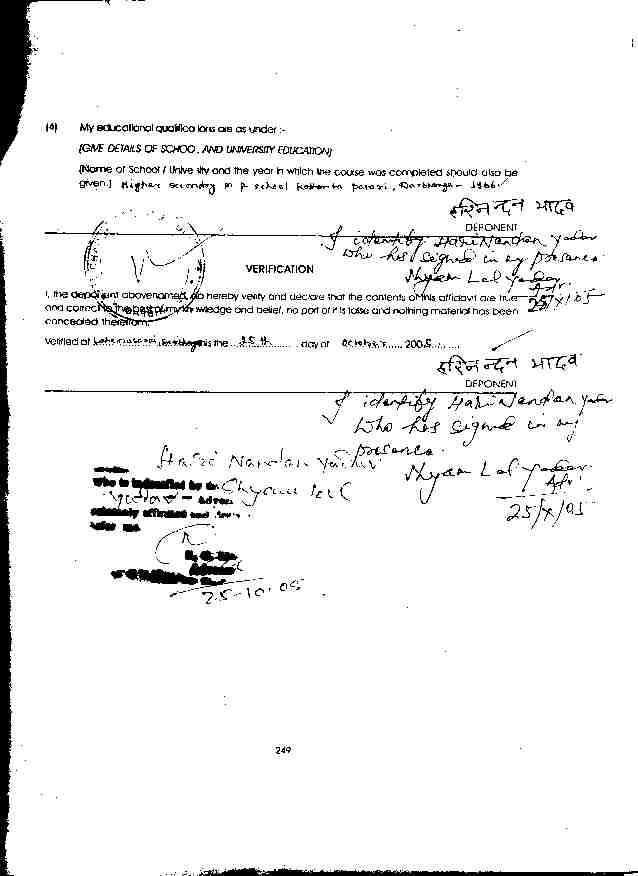 (4) My educational qualifica ions are as under :-
[GIVE DETAILS OF SCHOO. AND UNIVERSITY EDUCATION]
(Name of School / Unive sity and the year in which the course was completed should also be
given.) Higher Secondary M P School Darbhanga - 1966
हरिनन्दन यादव
DEPONENT
I identify Hari Nandan Yadav
who has signed in my presence
VERIFICATION
Shyam Lal Yadav
Adv.
I, the deponent abovenamed, do hereby verify and declare that the contents of this affidavit are true
25/X/05
and correct to the best of my knowledge and belief, no part of it is false and nothing material has been
concealed therefrom.
Verified at Laheriasarai, Darbhanga this the 25 th day of October 2005
हरिनन्दन यादव
DEPONENT
I identify Hari Nandan Yadav
who has signed in my
presence.
Hari Nandan Yadav
Shyam Lal Yadav
Adv.
25/X/05
Who is indentified by Shyam Lal
Yadav - Advo
solemnly affirmed and
before me
25-10-05
249